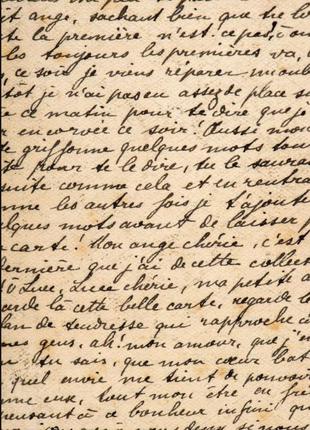 et ange, sachant bien que tu lo
te la première n'est-ce pas, ou
les toujours les premières va,
ce soir je viens réparer mon ou
tôt je n'ai pas eu assez de place su
e ce matin pour te dire que je
r encore ce soir. Aussi mon
te griffonne quelques mots tou
pour te le dire, tu le saura
suite comme cela et en rentra
me les autres fois je t'ajoute
lques mots avant de laisser p
carte! Mon ange chérie, c'est
dernière que j'ai de cette collec
O Luce, Luce chérie, ma petite a
arde là cette belle carte, regarde le
lan de tendresse qui rapproche c
nes gens, ah! mon amour, que j'e
tu sais, que mon cœur bat
quel envie me tient de pouvoir
me eux, tout mon être en fré
pensant à ce bonheur infini qu
deux si nous